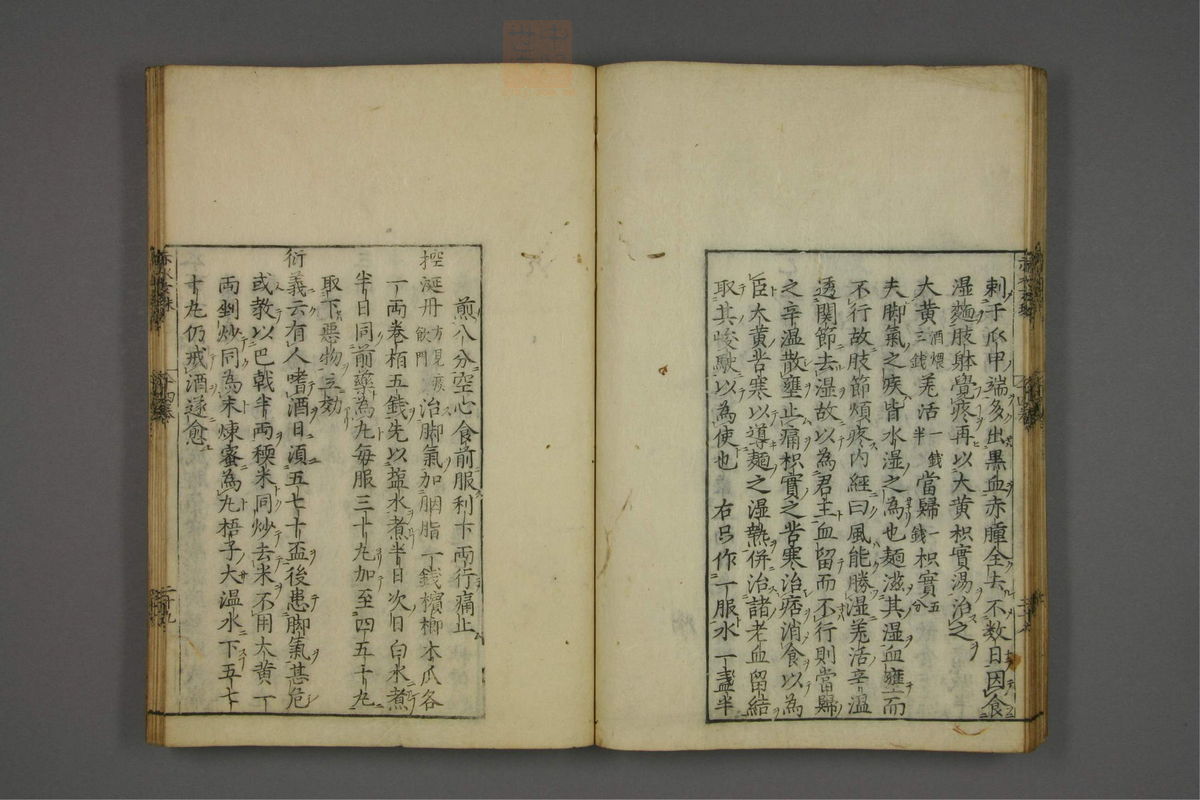 刺于爪甲端多出黒血赤腫全去不数日因食
湿麵肢躰覺疼再以大黄枳實湯治之
大黄酒煨三錢羌活一錢半當歸一錢枳實五分
夫脚氣之疾皆水湿之為也麵滋其湿血壅而
不行故肢節煩疼内經曰風能勝湿羌活辛温
透關節去湿故以為君主血留而不行則當歸
之辛温散壅止痛枳實之苦寒治痞消食以為
臣大黄苦寒以導麵之湿熱併治諸老血留結
取其峻駃以為使也 右㕮作一服水一盞半
煎八分空心食前服利下兩行痛止
控涎丹方見痰飲門治脚氣加胭脂一錢檳榔木瓜各
一両卷栢五錢先以鹽水煮半日次日白水煮
半日同前藥為丸毎服三十丸加至四五十丸
取下惡物立効
衍義云有人嗜酒日湏五七十盃後患脚氣甚危
或教以巴戟半両糯米同炒去米不用大黄一
両剉炒同為末煉蜜為丸梧子大温水下五七
十丸仍戒酒遂愈